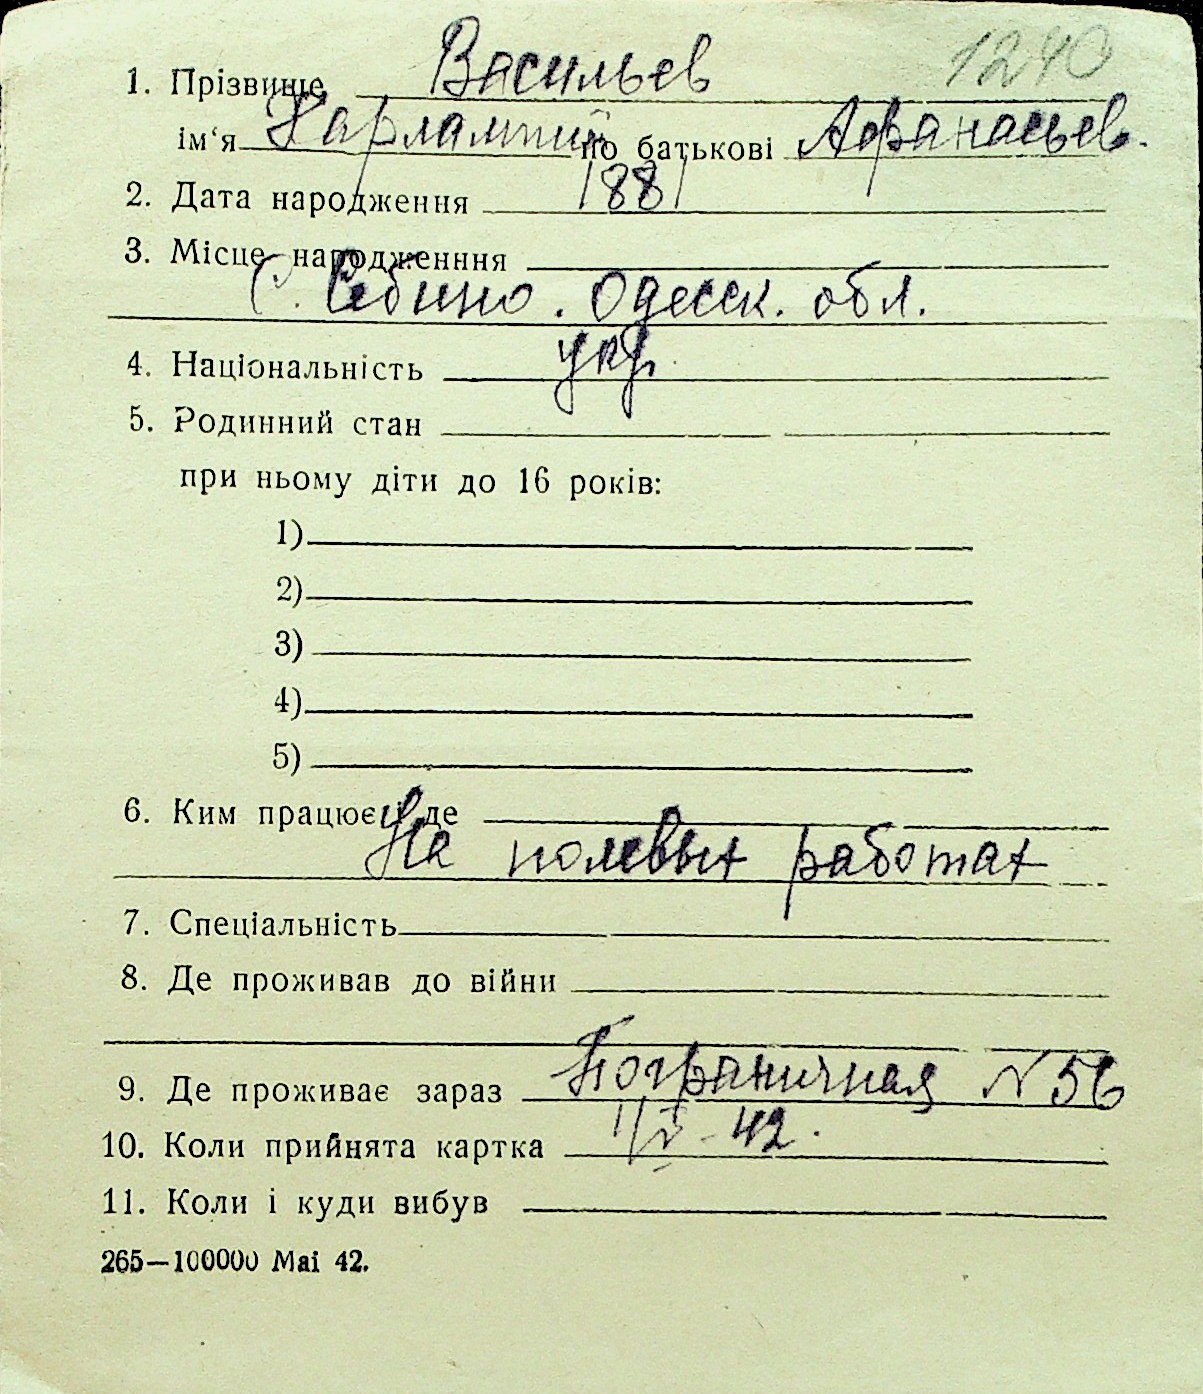 1240
1. Прізвище Васильев
ім'я Харлампий по батькові Афанасьев.
2. Дата народження 1881
3. Місце народженння
с. Себино. Одесск. обл.
4. Національність укр.
5. Родинний стан
при ньому діти до 16 років:
1)
2)
3)
4)
5)
6. Ким працює і де
На полевых работах
7. Спеціальність
8. Де проживав до війни
9. Де проживає зараз Пограничная N 56
10. Коли прийнята картка 1/V - 42.
11. Коли і куди вибув
265—100000 Mai 42.